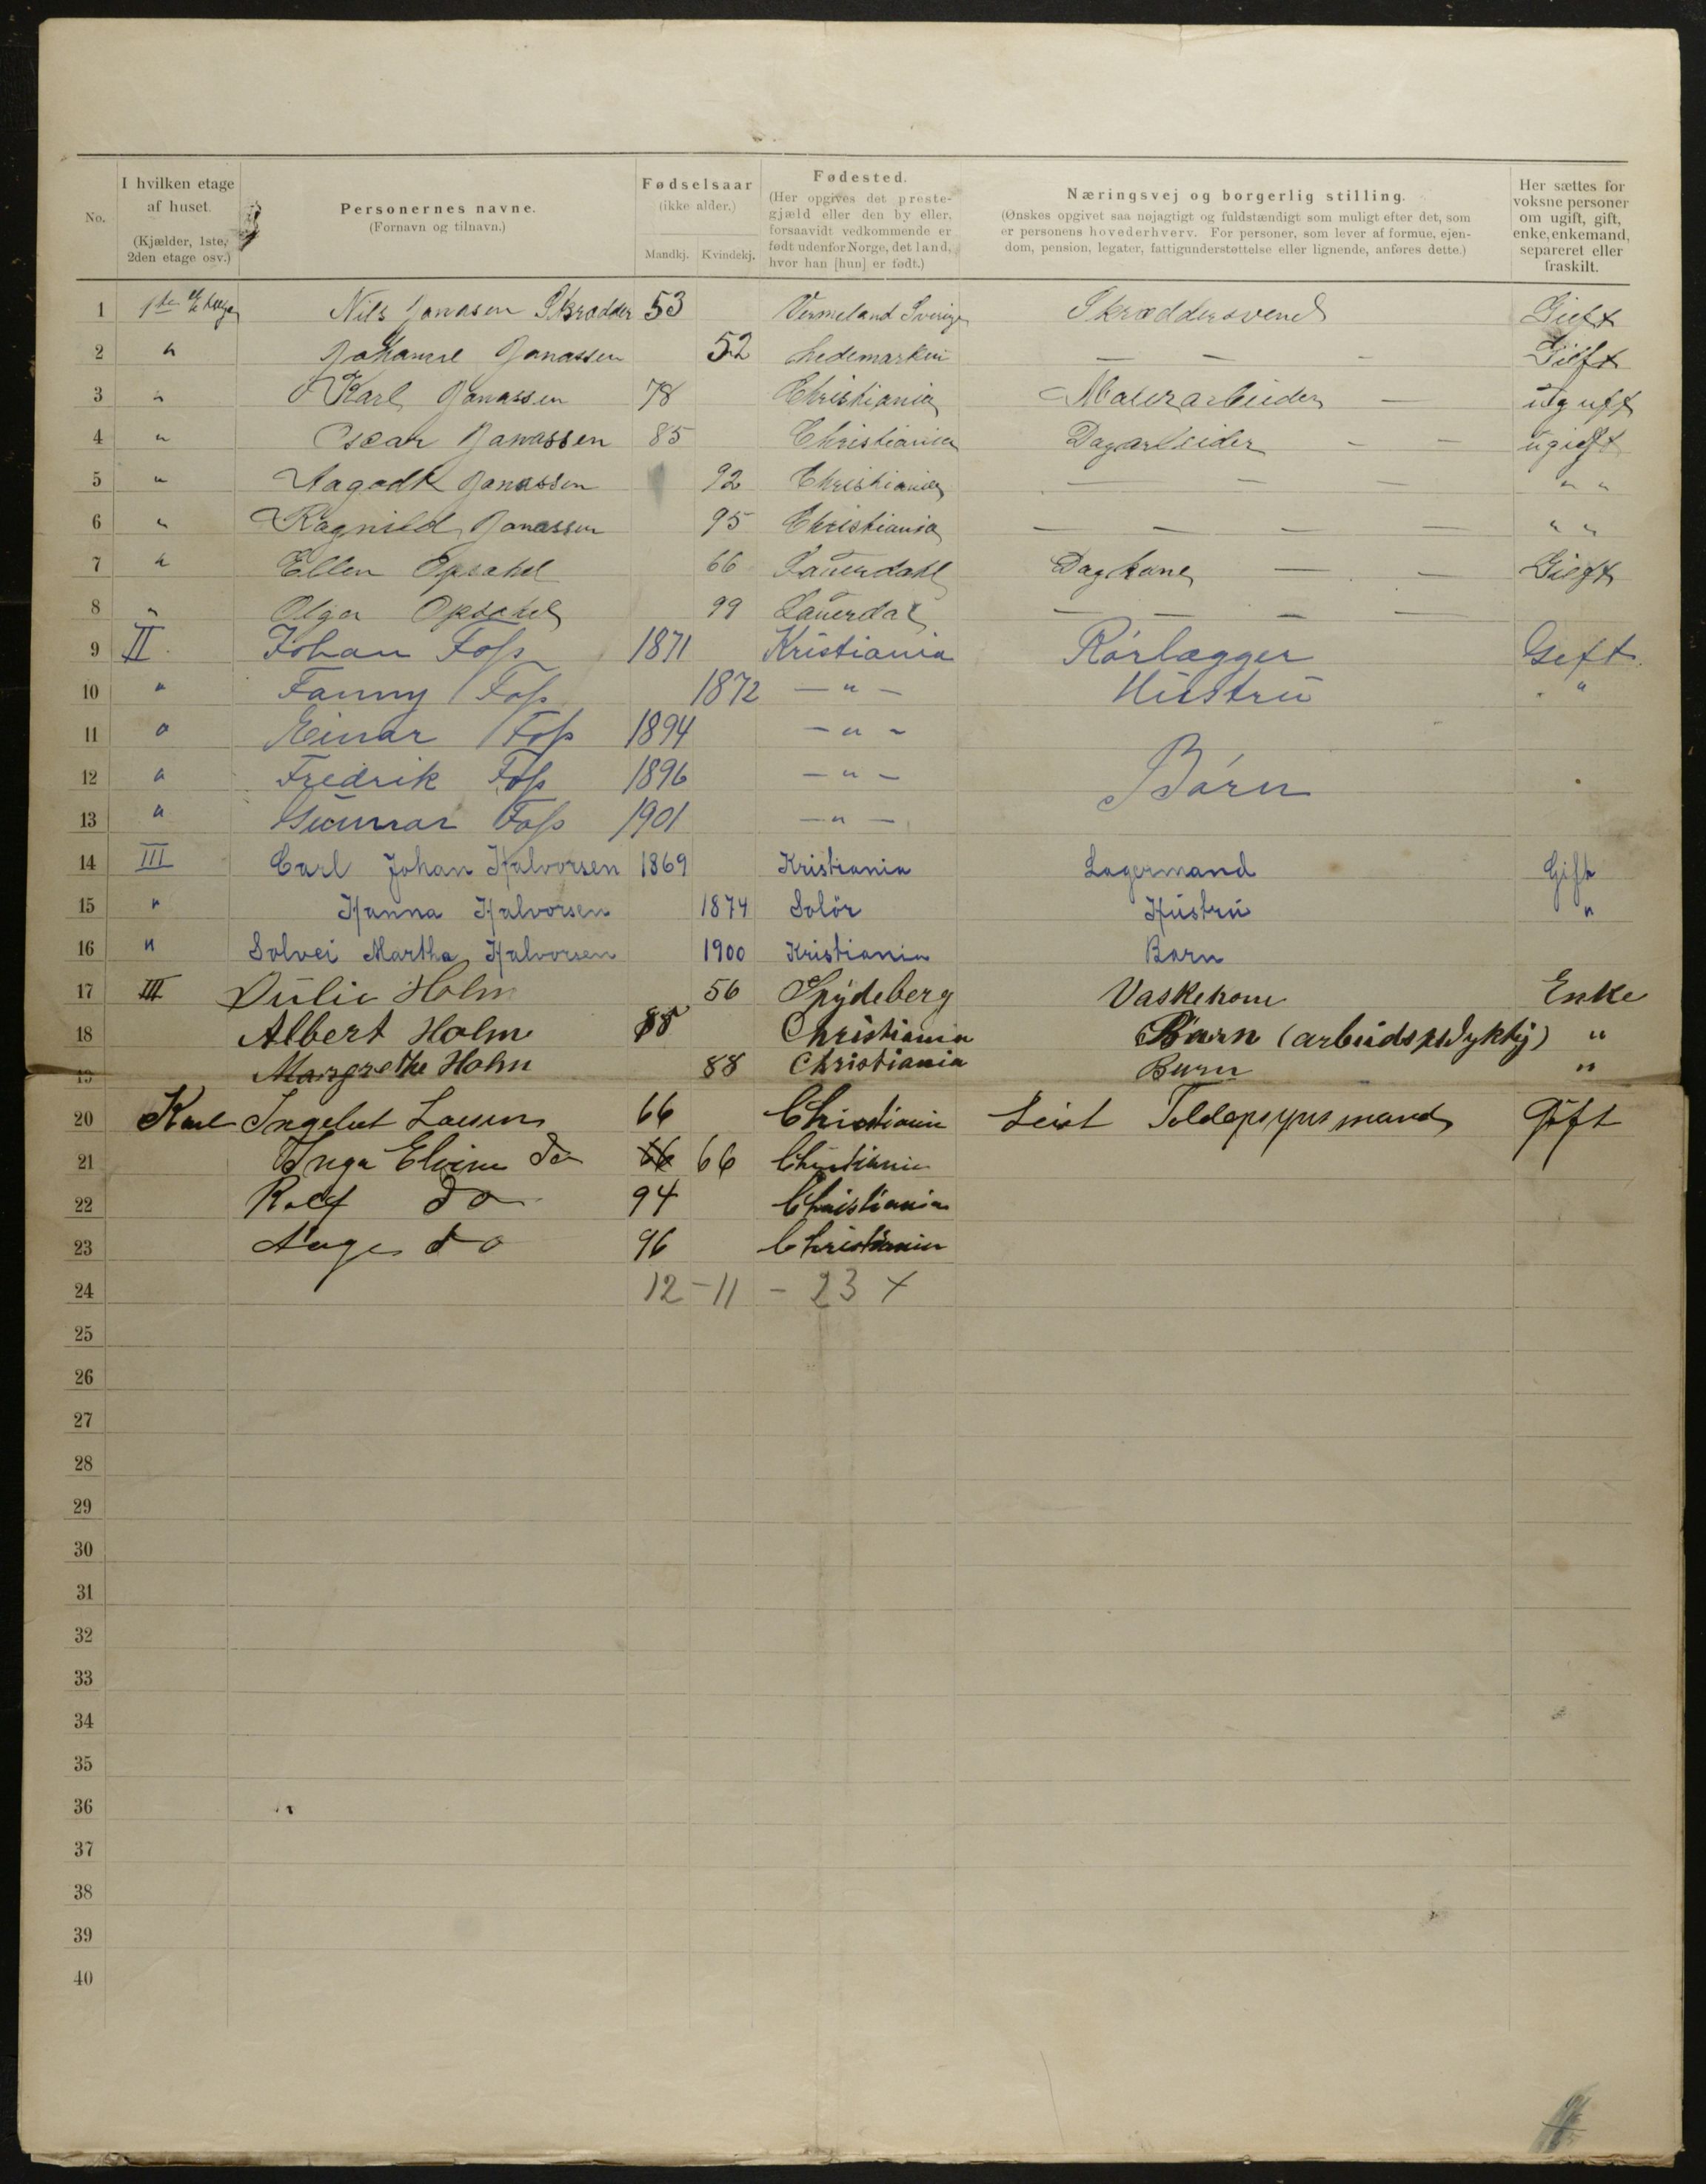 No.
I hvilken etage af huset. (Kjælder, 1ste, 2den etage osv.)
Personernes navne. (Fornavn og tilnavn.)
Fødselsaar (ikke alder.) Mandkj. Kvindekj.
Fødested. (Her opgives det prestegjæld eller den by eller, forsaavidt vedkommende er født udenfor Norge, det land, hvor han [hun] er født.)
Næringsvej og borgerlig stilling. (Ønskes opgivet saa nøjagtigt og fuldstændigt som muligt efter det, som er personens hovederhverv. For personer, som lever af formue, ejendom, pension, legater, fattigunderstøttelse eller lignende, anføres dette.)
Her sættes for voksne personer om ugift, gift, enke, enkemand, separeret eller fraskilt.
1 1ste Etage Nils Jonasen Skrædder 53 Vermeland Sverige Skræddersvend Gieft
2 " Johanne Jonassen 52 Hedemarken — — — Gieft
3 " Karl Jonassen 78 Christiania Malerarbeider —
4 " Oscar Jonassen 85 Christiania Dagarbeider — — ugieft
5 " Aagodt Jonassen 92 Christiania — — — " "
6 " Ragnild Jonassen 95 Christiania — — — — " "
7 " Ellen Opsahel 66 Laurdahl Dagkone — — Gieft
8 " Olga Opsahel 99 Laurdal — — — —
9 II Johan Foss 1871 Kristiania Rørlægger Geft.
10 " Fanny Foss 1872 — " — Hustru "
11 " Einar Foss 1894 — " —
12 " Fredrik Foss 1896 — " — Børn
13 " Gunnar Foss 1901 — " —
14 III Carl Johan Halvorsen 1869 Kristiania Lagermand Gift
15 " Hanna Halvorsen 1874 Solør Hustru "
16 " Solvei Martha Halvorsen 1900 Kristiania Barn
17 III Julie Holm 56 Spydeberg Vaskekone Enke
18 Albert Holm 85 Christiania Barn "
19 Margrethe Holm 88 Christiania Barn "
20 Karl Ingelut Larsen 66 Christiania Toldopsynsmand Gift
21 Inga Elvine do 66 66 Christiania
22 Rolf do 94 Christiania
23 Aage do 96 Christiania
24 12 – 11 – 23 +
25
26
27
28
29
30
31
32
33
34
35
36
37
38
39
40